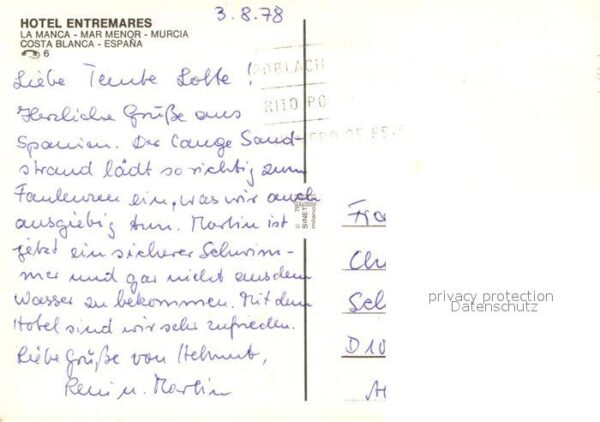 3.8.78
HOTEL ENTREMARES
LA MANCA - MAR MENOR - MURCIA
COSTA BLANCA - ESPAÑA
6
Liebe Tante Lotte!
Herzliche Grüße aus
Spanien. Der lange Sand-
strand lädt so richtig zum
Faulenzen ein, was wir auch
ausgiebig tun. Martin ist
jetzt ein sicherer Schwim-
mer und gar nicht aus dem
Wasser zu bekommen. Mit dem
Hotel sind wir sehr zufrieden.
Liebe Grüße von Helmut,
Reni u. Martin
POBLACI
RITO PO
Fra
Ch
Sch
D 10
privacy protection
Datenschutz